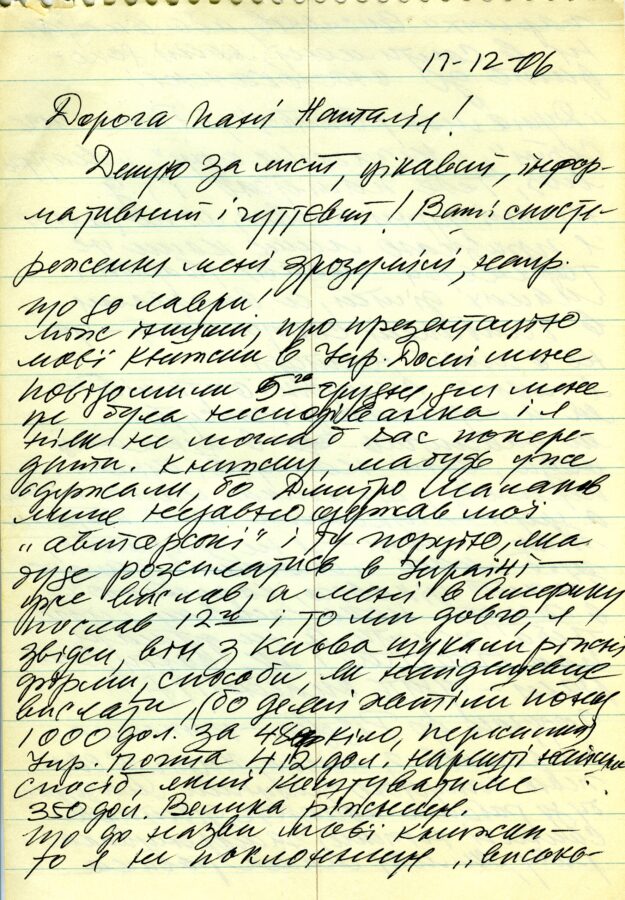 17-12-06
Дорога Пані Наталія!
Дякую за лист, цікавий, інфор-
мативний і чуттєвий! Ваші спосте-
реження мені зрозумілі, напр.
що до лаври!
Між іншим, про презентацію
моєї книжки в Укр. Домі мене
повідомили 5го грудня, для мене
це була несподіванка і я
ніяк не могла б Вас попере-
дити. Книжку, мабуть уже
одержали, бо Дмитро Малаков
лише недавно одержав мої
„авторські" і ту порцію, яка
буде розсилатись в Україні –
уже вислав, а мені в Америку
послав 12го і то ми довго, я
звідси, він з Києва шукали ріжні
фірми, способи, як найдешевше
вислати, (бо деякі хотіли понад
1000 дол. за 48 кіло,
Укр. пошта 412 дол. нарешті
спосіб, який коштуватиме
350 дол. Велика ріжниця.
Що до назви моєї книжки –
то я не поклонниця „високо-